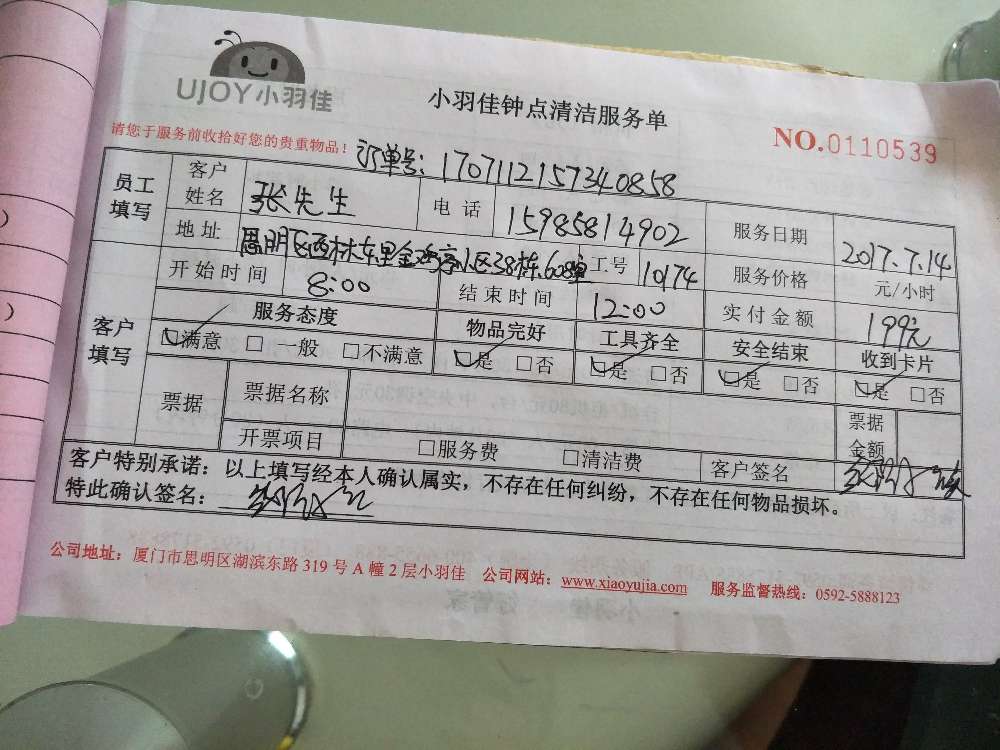 UJOY小羽佳
小羽佳钟点清洁服务单
NO.0110539
请您于服务前收拾好您的贵重物品！ 订单号：1707112157340858
员工填写 客户姓名 张先生 电话 15985814902 服务日期 2017.7.14
地址 思明区西林东里金鸡亭小区38栋608室 工号 10174 服务价格 元/小时
客户填写 开始时间 8:00 结束时间 12:00 实付金额 199元
服务态度 物品完好 工具齐全 安全结束 收到卡片
☑满意 □一般 □不满意 ☑是 □否 ☑是 □否 ☑是 □否 ☑是 □否
票据 票据名称 票据金额
开票项目 □服务费 □清洁费 客户签名
客户特别承诺：以上填写经本人确认属实，不存在任何纠纷，不存在任何物品损坏。
特此确认签名：
公司地址：厦门市思明区湖滨东路 319 号 A 幢 2 层小羽佳 公司网站：www.xiaoyujia.com 服务监督热线：0592-5888123